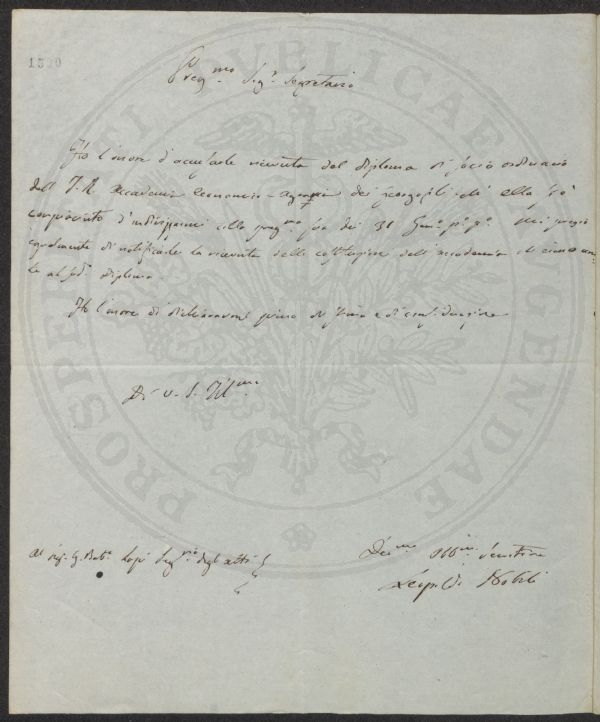 1320
Preg.mo Sig.r Segretario
Ho l'onore d'accusarle ricevuta del diploma di socio ordinario
dell' I. R. Accademia Economico-agraria dei georgofili che ella si è
compiaciuto d'indirizzarmi colla preg.ma sua dei 31 Genn.o p.o p.o Mi pregio
egualmente di notificarle la ricevuta delle costituzioni dell'accademia
al sud.o diploma.
Ho l'onore di dichiararmi pieno di stima e di considerazione
Di V. S. Ill.ma
Al Sig. G. Bat.a Lapi Seg.rio degli atti
Dev.mo Obb.mo servitore
Leop.do Nobili
PROSPERITATI PUBLICAE AUGENDAE